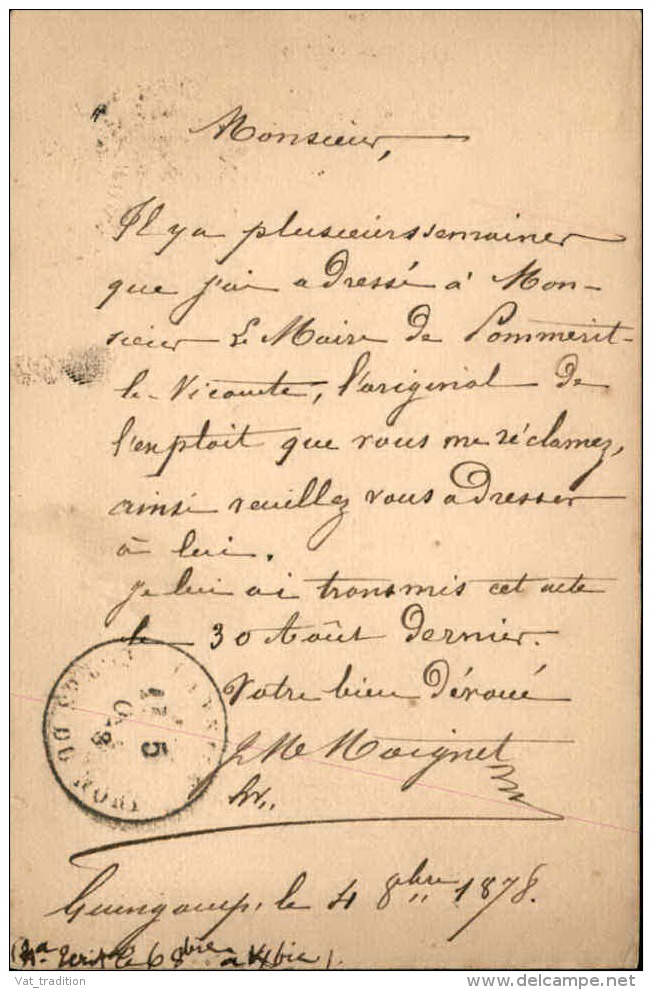 Monsieur,
Il y a plusieurs semaines
que j'ai adressé à Mon-
sieur Le Maire de Pommerit-
le-Vicomte, l'original de
l'exploit que vous me réclamez,
ainsi veuillez vous adresser
à lui.
Je lui ai transmis cet acte
le 30 Août dernier.
Votre bien dévoué
J M Moignet
5
Guingamp, le 4 8bre 1878.
le 6 8bre
Vat_tradition
delcampe.net